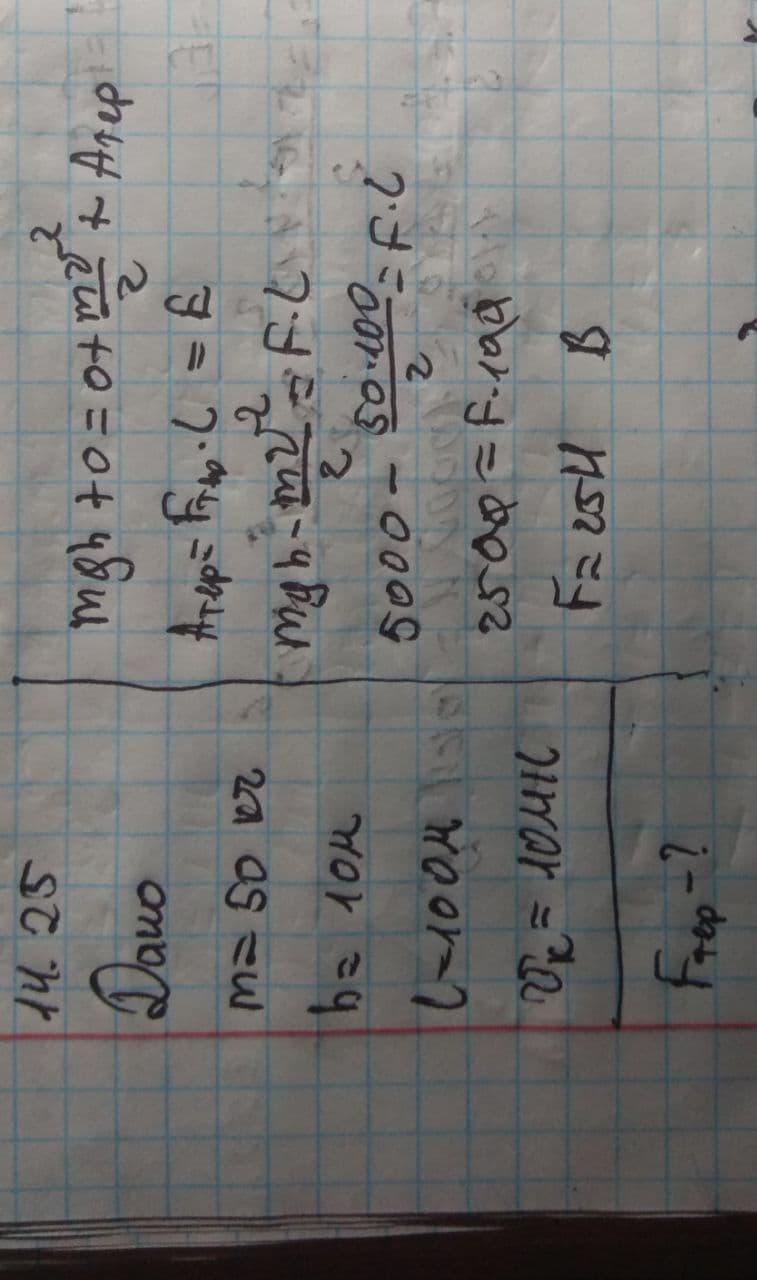 14.25
Дано
m = 50 кг
h = 10м
l = 100м
v_к = 10м/с
F_тер - ?
mgh + 0 = 0 + mv²/2 + A_тер
A_тер = F_тр · l =
mgh - mv²/2 = F · l
5000 - 50·100/2 = F · l
2500 = F · 100
F = 25Н В